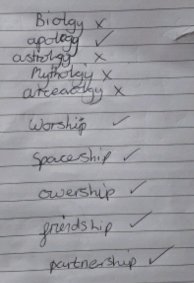 Biology ×
apology ✓
astrology ×
Mythology ×
arceaology ×
Worship ✓
Spaceship ✓
owership ✓
friendship ✓
partnership ✓